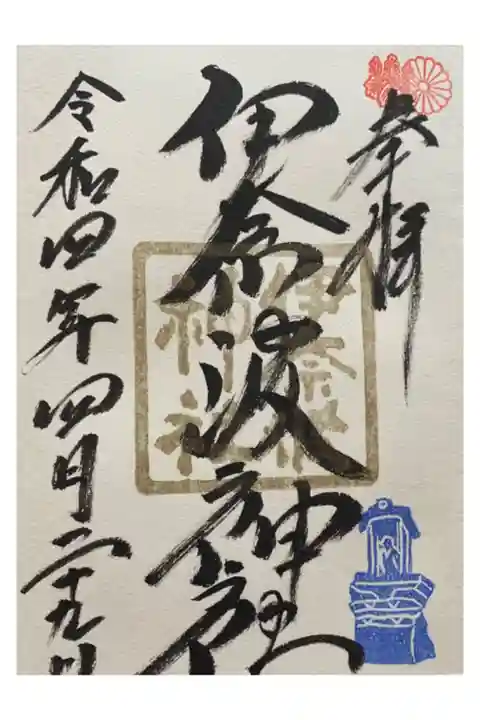 奉拝
伊奈波神社
令和四年四月二十九日
伊奈波
神社